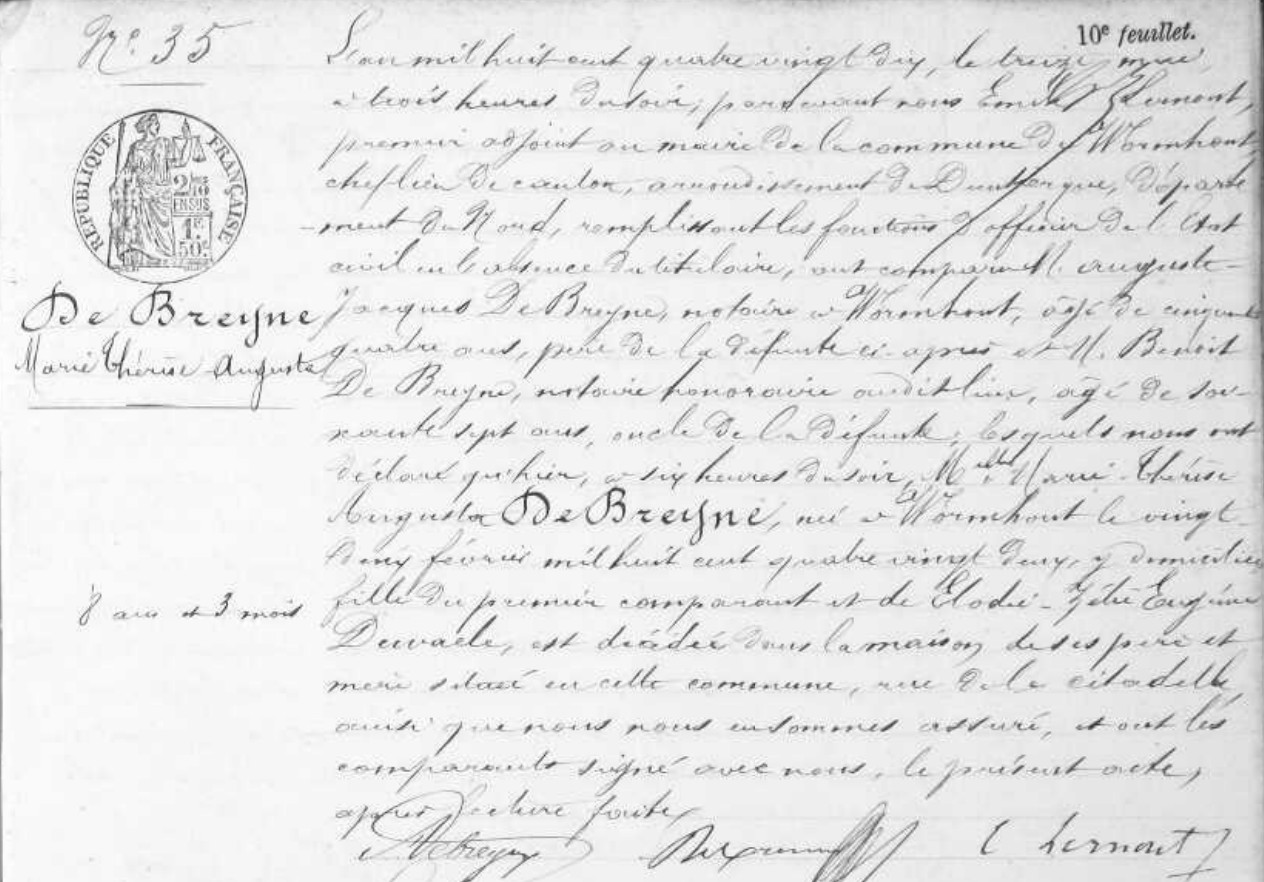 10e feuillet.
No. 35
L'an mil huit cent quatre vingt dix, le treize mai,
à trois heures du soir, pardevant nous Emile Lernout,
premier adjoint au maire de la commune de Wormhout,
chef lieu de canton, arrondissement de Dunkerque, départe
-ment du Nord, remplissant les fonctions d'officier de l'Etat
civil en l'absence du titulaire, ont comparu M. auguste-
Jacques De Breyne, notaire à Wormhout, âgé de cinquante
quatre ans, père de la défunte ci-après et M. Benoit
De Breyne, notaire honoraire audit lieu, âgé de soi-
xante sept ans, oncle de la défunte; lesquels nous ont
déclaré qu'hier, à six heures du soir, Melle Marie-Thérèse
Augusta De Breyne, née à Wormhout le vingt-
deux février mil huit cent quatre vingt deux, y domiciliée,
fille du premier comparant et de Elodie-Zélie Eugénie
Dewaele, est décédée dans la maison de ses père et
mère située en cette commune, rue de la citadelle,
ainsi que nous nous en sommes assuré, et ont les
comparants signé avec nous, le présent acte,
après lecture faite,
REPUBLIQUE FRANÇAISE
2 10mes
EN SUS
1f.
50c.
De Breyne
Marie Thérèse Augusta
8 ans et 3 mois
ADebreyne
E Lernout